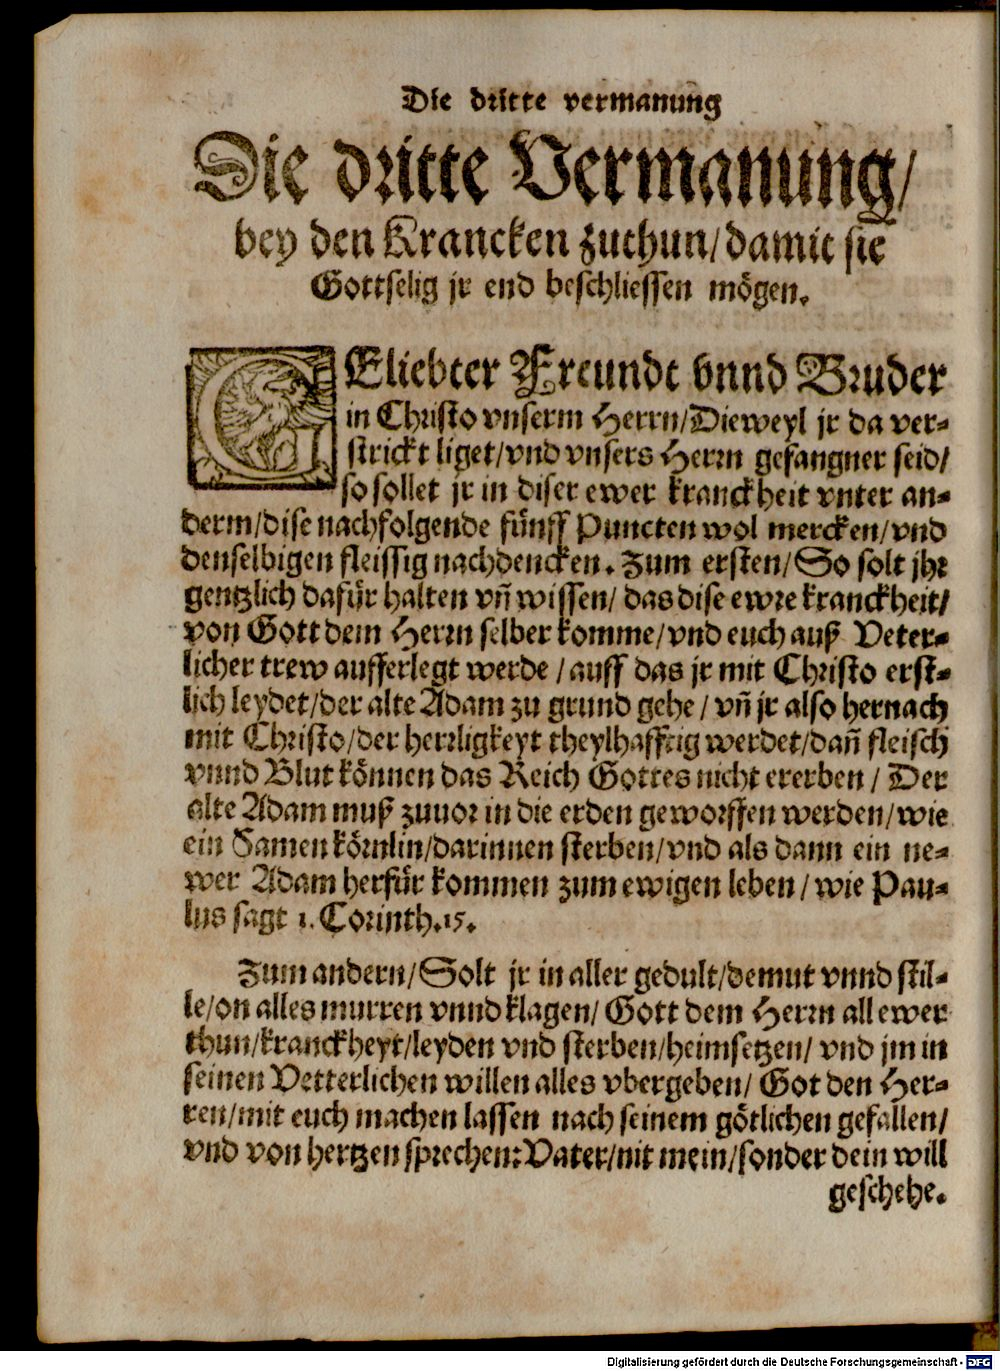 Die dritte vermanung
Die dritte Vermanung/
bey den Krancken zuthun/damit sie
Gottselig jr end beschliessen mögen.
GEliebter Freundt vnnd Bruder
in Christo vnserm Herrn/Dieweyl jr da ver-
strickt liget/vnd vnsers Herrn gefangner seid/
so sollet jr in diser ewer kranckheit vnter an-
derm/dise nachfolgende fünff Puncten wol mercken/vnd
denselbigen fleissig nachdencken. Zum ersten/So solt jhr
gentzlich dafür halten vñ wissen/das dise ewre kranckheit/
von Gott dem Herrn selber komme/vnd euch auß Veter-
licher trew aufferlegt werde/auff das jr mit Christo erst-
lich leydet/der alte Adam zu grund gehe/vñ jr also hernach
mit Christo/der herrligkeyt theylhafftig werdet/dañ fleisch
vnnd Blut können das Reich Gottes nicht ererben/Der
alte Adam muß zuuor in die erden geworffen werden/wie
ein Samen körnlin/darinnen sterben/vnd als dann ein ne-
wer Adam herfür kommen zum ewigen leben/wie Pau-
lus sagt 1. Corinth.15.
Zum andern/Solt jr in aller gedult/demut vnnd stil-
le/on alles murren vnnd klagen/Gott dem Herrn all ewer
thun/kranckheyt/leyden vnd sterben/heimsetzen/vnd jm in
seinen Vetterlichen willen alles vbergeben/Got den Her-
ren/mit euch machen lassen nach seinem götlichen gefallen/
vnd von hertzen sprechen:Vater/nit mein/sonder dein will
geschehe.
Digitalisierung gefördert durch die Deutsche Forschungsgemeinschaft - DFG